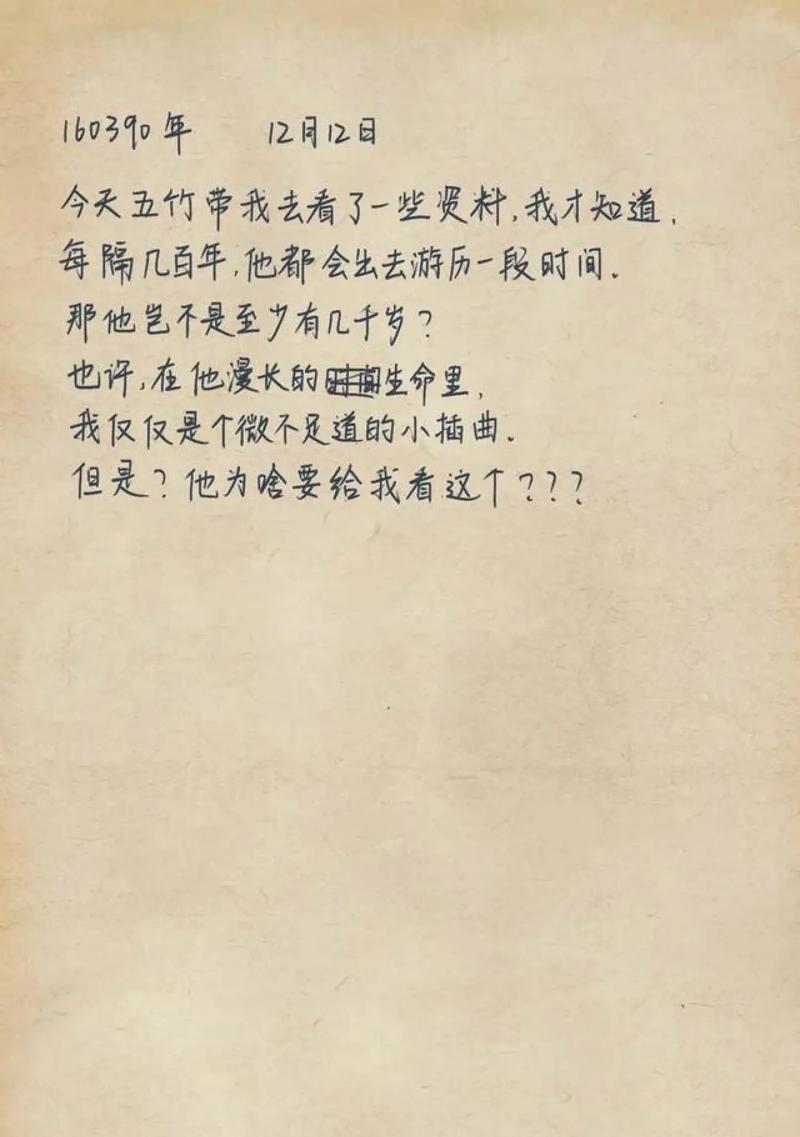 160390年 12月12日
今天五竹带我去看了一些资料,我才知道,
每隔几百年,他都会出去游历一段时间.
那他岂不是至少有几千岁?
也许,在他漫长的时间生命里,
我仅仅是个微不足道的小插曲.
但是?他为啥要给我看这个???